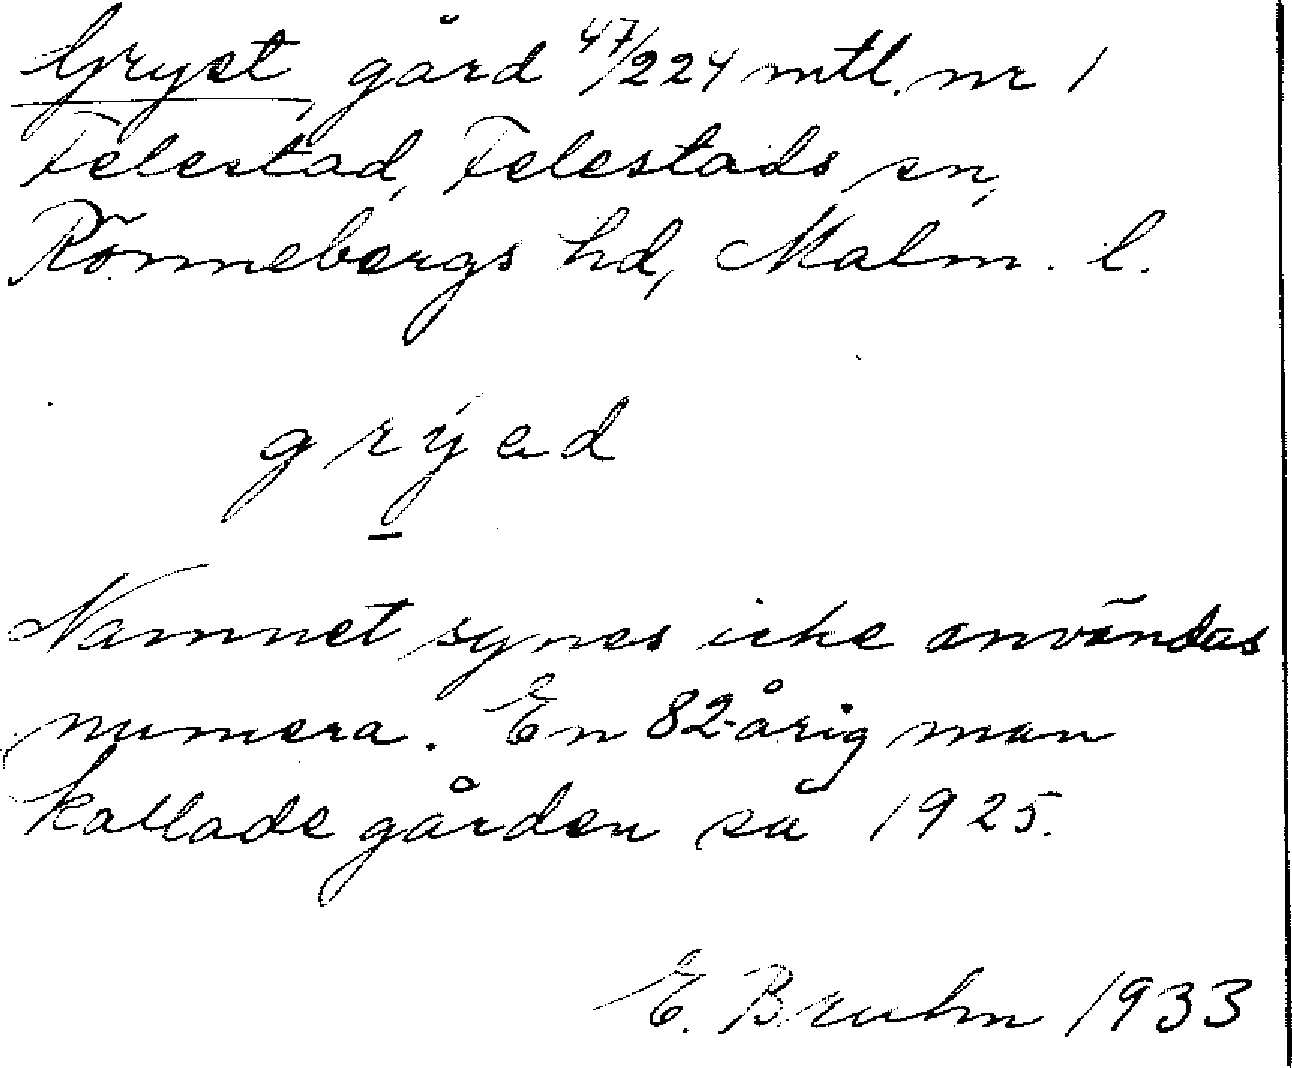 Gryet, gård 47/224 mtl. nr 1
Felestad, Felestads sn,
Rönnebergs hd, Malm. l.
grýad
Namnet synes icke användas
numera. En 82-årig man
kallade gården så 1925.
E. Bruhn 1933